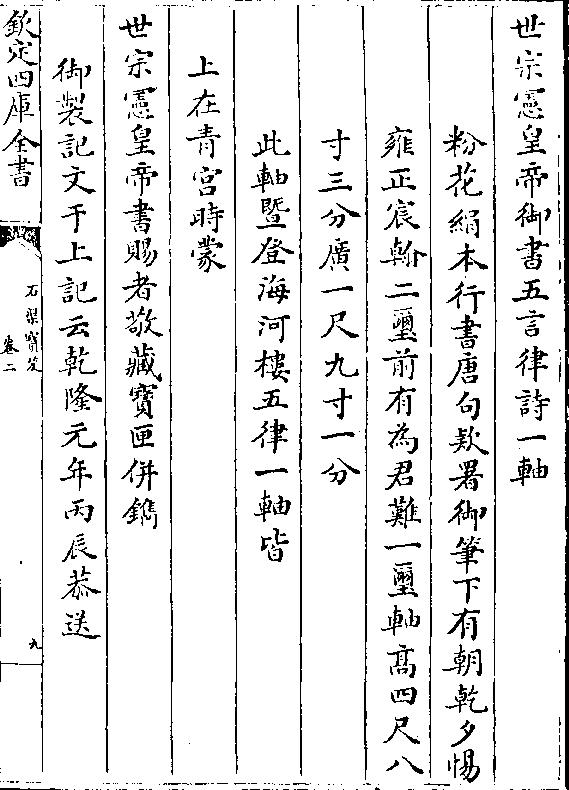 世宗憲皇帝御書五言律詩一軸
粉花絹本行書唐句欵署御筆下有朝乾夕惕
雍正宸翰二璽前有為君難一璽軸髙四尺八
寸三分廣一尺九寸一分
此軸暨登海河樓五律一軸皆
上在青宮時蒙
世宗憲皇帝書賜者敬藏寶匣併鐫
御製記文于上記云乾隆元年丙辰恭送
欽定四庫全書
石渠寶笈
卷二
九